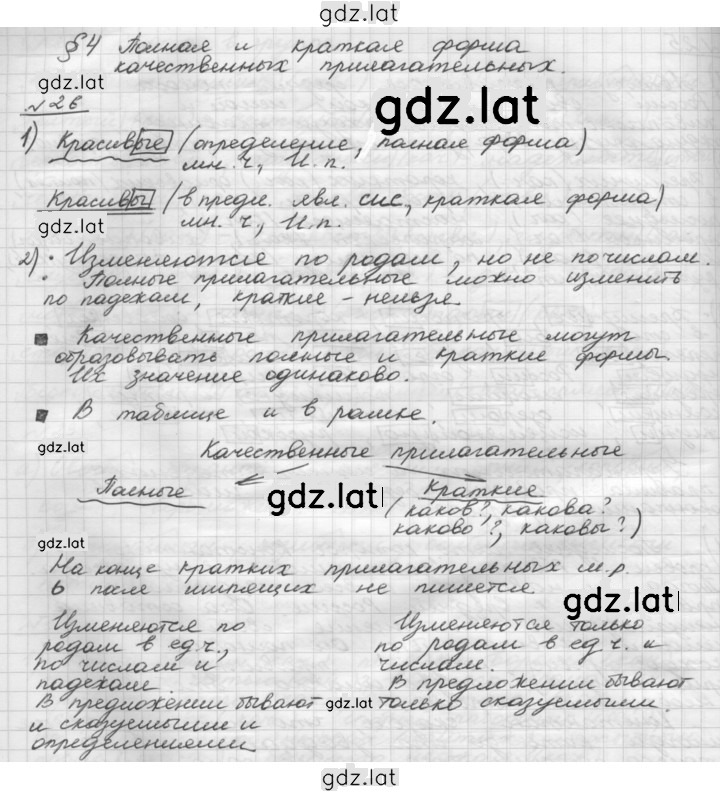 gdz.lat
§4 Полная и краткая форма
качественных прилагательных.
gdz.lat
№26
gdz.lat
1) Красивые (определение, полная форма)
мн. ч, И. п.
Красивы (в предл. явл. сис, краткая форма)
gdz.lat мн. ч, И. п.
2) · Изменяются по родам, но не по числам.
· Полные прилагательные можно изменить
по падежам, краткие - нельзя.
▪ Качественные прилагательные могут
образовывать полные и краткие формы.
Их значение одинаково.
▪ В таблице и в рамке.
gdz.lat
Качественные прилагательные
Полные
Краткие
gdz.lat
(каков?, какова?
каково?, каковы?)
gdz.lat
На конце кратких прилагательных м.р.
ь после шипящих не пишется
gdz.lat
Изменяются по
родам в ед ч.,
по числам и
падежам.
В предложении бывают
и сказуемыми и
определениями
Изменяются только
по родам в ед ч. и
числам.
В предложении бывают
только сказуемыми.
gdz.lat
gdz.lat